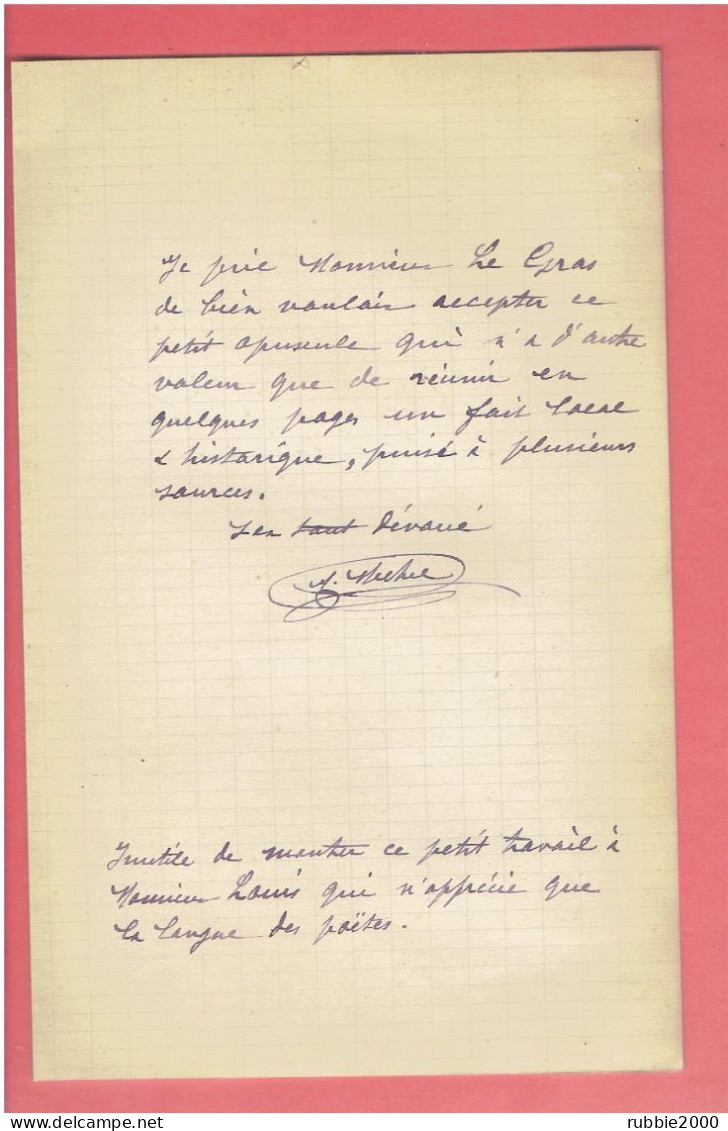 Je prie Monsieur Le Gras
de bien vouloir accepter ce
petit opuscule qui n'a d'autre
valeur que de réunir en
quelques pages un fait local
& historique, puisé à plusieurs
sources.
Son tout dévoué
Michel
Inutile de montrer ce petit travail à
Monsieur Louis qui n'apprécie que
la langue des poëtes.
rubbie2000